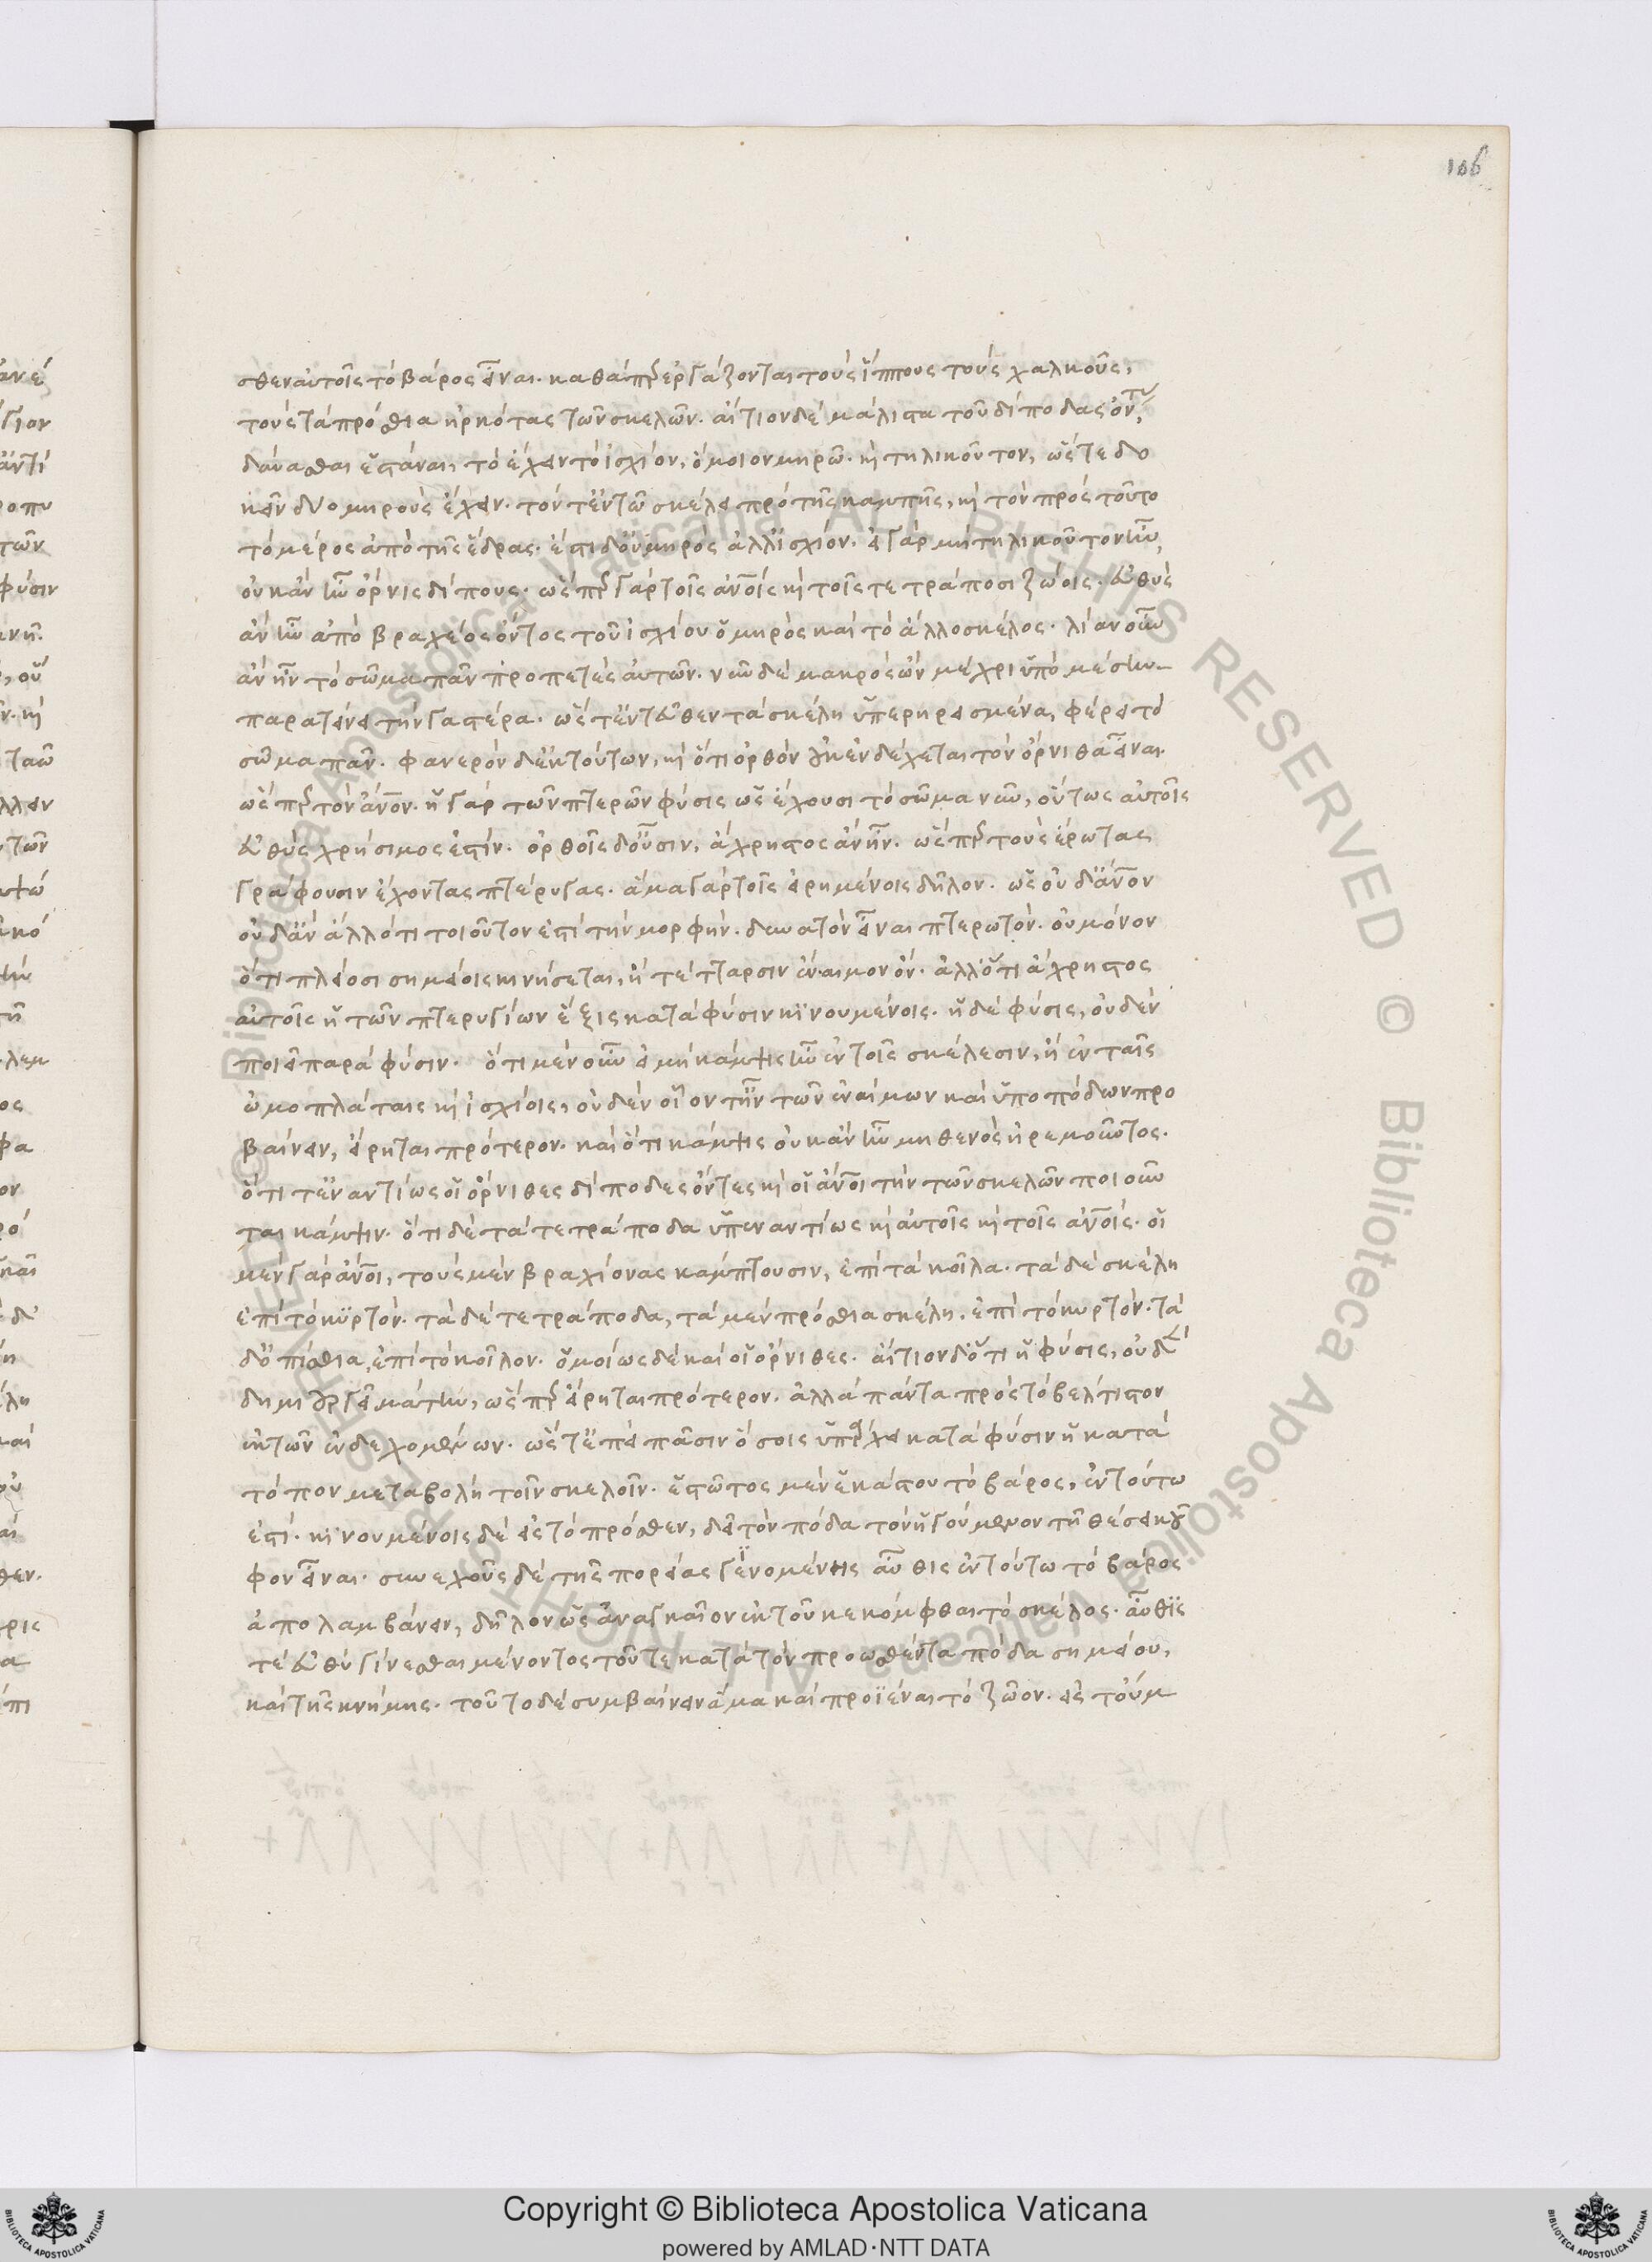 106
σθεν αὐτοῖς τὸ βάρος εἶναι. καθάπερ ἐργάζονται τοὺς ἵππους τοὺς χαλκοῦς,
τοὺς τὰ πρόσθια ἠρκότας τῶν σκελῶν. αἴτιον δὲ μάλιστα τοῦ δίποδας ὄντας
δύνασθαι ἑστάναι, τὸ ἔχειν τὸ ἰσχίον, ὅμοιον μηρῶ. καὶ τηλικοῦτον, ὥστε δο
κεῖν δύο μηροὺς ἔχειν. τόν τ' ἐν τῶ σκέλει πρὸ τῆς καμπῆς, καὶ τὸν πρὸς τοῦτο
τὸ μέρος ἀπὸ τῆς ἕδρας. ἔστι δ' οὐ μηρὸς ἀλλ' ἰσχίον. εἰ γὰρ μὴ τηλικοῦτον ἦν,
οὐκ ἂν ἦν ὄρνις δίπους. ὥσπερ γὰρ τοῖς ἀνοις καὶ τοῖς τετράποσι ζώοις. εὐθὺς
ἂν ἦν ἀπὸ βραχέος ὄντος τοῦ ἰσχίου ὁ μηρὸς καὶ τὸ ἄλλο σκέλος. λίαν οὖν
ἂν ἦν τὸ σῶμα πᾶν προπετὲς αὐτῶν. νῦν δὲ μακρὸς ὢν μέχρι ὑπὸ μέσην
παρατείνει τὴν γαστέρα. ὥστ' ἐντεῦθεν τὰ σκέλη ὑπερηρεισμένα, φέρει τὸ
σῶμα πᾶν. φανερὸν δ' ἐκ τούτων, καὶ ὅτι ὀρθὸν οὐκ ἐνδέχεται τὸν ὄρνιθα εἶναι.
ὥσπερ τὸν ἄνον. ἡ γὰρ τῶν πτερῶν φύσις ὡς ἔχουσι τὸ σῶμα νῦν, οὕτως αὐτοῖς
εὐθὺς χρήσιμος ἐστίν. ὀρθοῖς δ' οὖσιν, ἄχρηστος ἂν ἦν. ὥσπερ τοὺς ἔρωτας
γράφουσιν ἔχοντας πτέρυγας. ἅμα γὰρ τοῖς εἰρημένοις δῆλον. ὡς οὐδ' ἄνον
οὐδ' ἂν ἄλλό τι τοιοῦτον ἐστὶ τὴν μορφήν. δυνατὸν εἶναι πτερωτόν. οὐ μόνον
ὅτι πλείοσι σημείοις κινήσεται, ἢ τέτταρσιν ἔναιμον ὄν. ἀλλ' ὅτι ἄχρηστος
αὐτοῖς ἡ τῶν πτερυγίων ἕξις κατὰ φύσιν κινουμένοις. ἡ δὲ φύσις, οὐδὲν
ποιεῖ παρὰ φύσιν. ὅτι μὲν οὖν εἰ μὴ κάμψις ἦν ἐν τοῖς σκέλεσιν, ἢ ἐν ταῖς
ὠμοπλάταις καὶ ἰσχίοις, οὐδὲν οἷόν τ' ἦν τῶν ἐναίμων καὶ ὑποπόδων προ
βαίνειν, εἴρηται πρότερον. καὶ ὅτι κάμψις οὐκ ἂν ἦν μηθενὸς ἠρεμοῦντος.
ὅτι τ' ἐναντίως οἱ ὄρνιθες δίποδες ὄντες καὶ οἱ ἄνοι τὴν τῶν σκελῶν ποιοῦν
ται κάμψιν. ὅτι δὲ τὰ τετράποδα ὑπεναντίως καὶ αὐτοῖς καὶ τοῖς ἀνοις. οἱ
μὲν γὰρ ἄνοι, τοὺς μὲν βραχίονας κάμπτουσιν, ἐπὶ τὰ κοῖλα. τὰ δὲ σκέλη
ἐπὶ τὸ κυρτόν. τὰ δὲ τετράποδα, τὰ μὲν πρόσθια σκέλη, ἐπὶ τὸ κυρτόν. τὰ
δ' ὀπίσθια, ἐπὶ τὸ κοῖλον. ὁμοίως δὲ καὶ οἱ ὄρνιθες. αἴτιον δ' ὅτι ἡ φύσις, οὐδὲν
δημιουργεῖ μάτην, ὥσπερ εἴρηται πρότερον. ἀλλὰ πάντα πρὸς τὸ βέλτιστον
ἐκ τῶν ἐνδεχομένων. ὥστ' ἐπεὶ πᾶσιν ὅσοις ὑπάρχει κατὰ φύσιν ἡ κατὰ
τόπον μεταβολὴ τοῖν σκελοῖν. ἑστῶτος μὲν ἑκάστου τὸ βάρος, ἐν τούτω
ἐστί. κινουμένοις δὲ εἰς τὸ πρόσθεν, δεῖ τὸν πόδα τὸν ἡγούμενον τῆ θέσει κοῦ
φον εἶναι. συνεχοῦς δὲ τῆς πορείας γινομένης αὖθις ἐν τούτω τὸ βάρος
ἀπολαμβάνειν, δῆλον ὡς ἀναγκαῖον ἐκ τοῦ κεκάμφθαι τὸ σκέλος. αὖθίς
τε εὐθὺ γίνεσθαι μένοντος τοῦ τε κατὰ τὸν προωσθέντα πόδα σημείου,
καὶ τῆς κνήμης. τοῦτο δὲ συμβαίνειν ἅμα καὶ προϊέναι τὸ ζῶον. εἰς τοὐμ
© Biblioteca Apostolica Vaticana ALL RIGHTS RESERVED
Copyright © Biblioteca Apostolica Vaticana
powered by AMLAD·NTT DATA
BIBLIOTECA APOSTOLICA VATICANA
BIBLIOTECA APOSTOLICA VATICANA